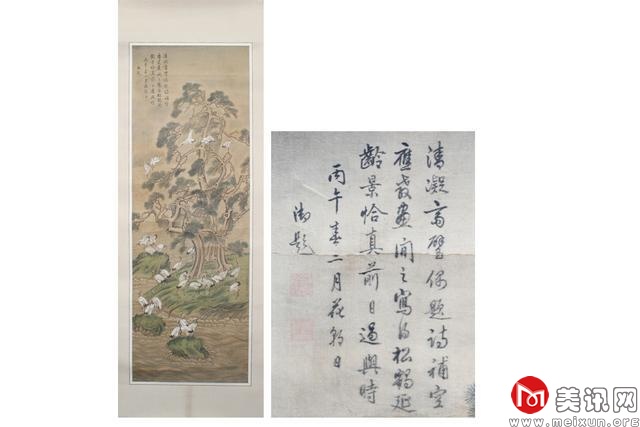 清凝高壁偶題詩補空
應教畫間之寫得松鶴延
齡景恰真前日過與時
丙午春二月花朝日
御題
美讯网
www.meixun.org